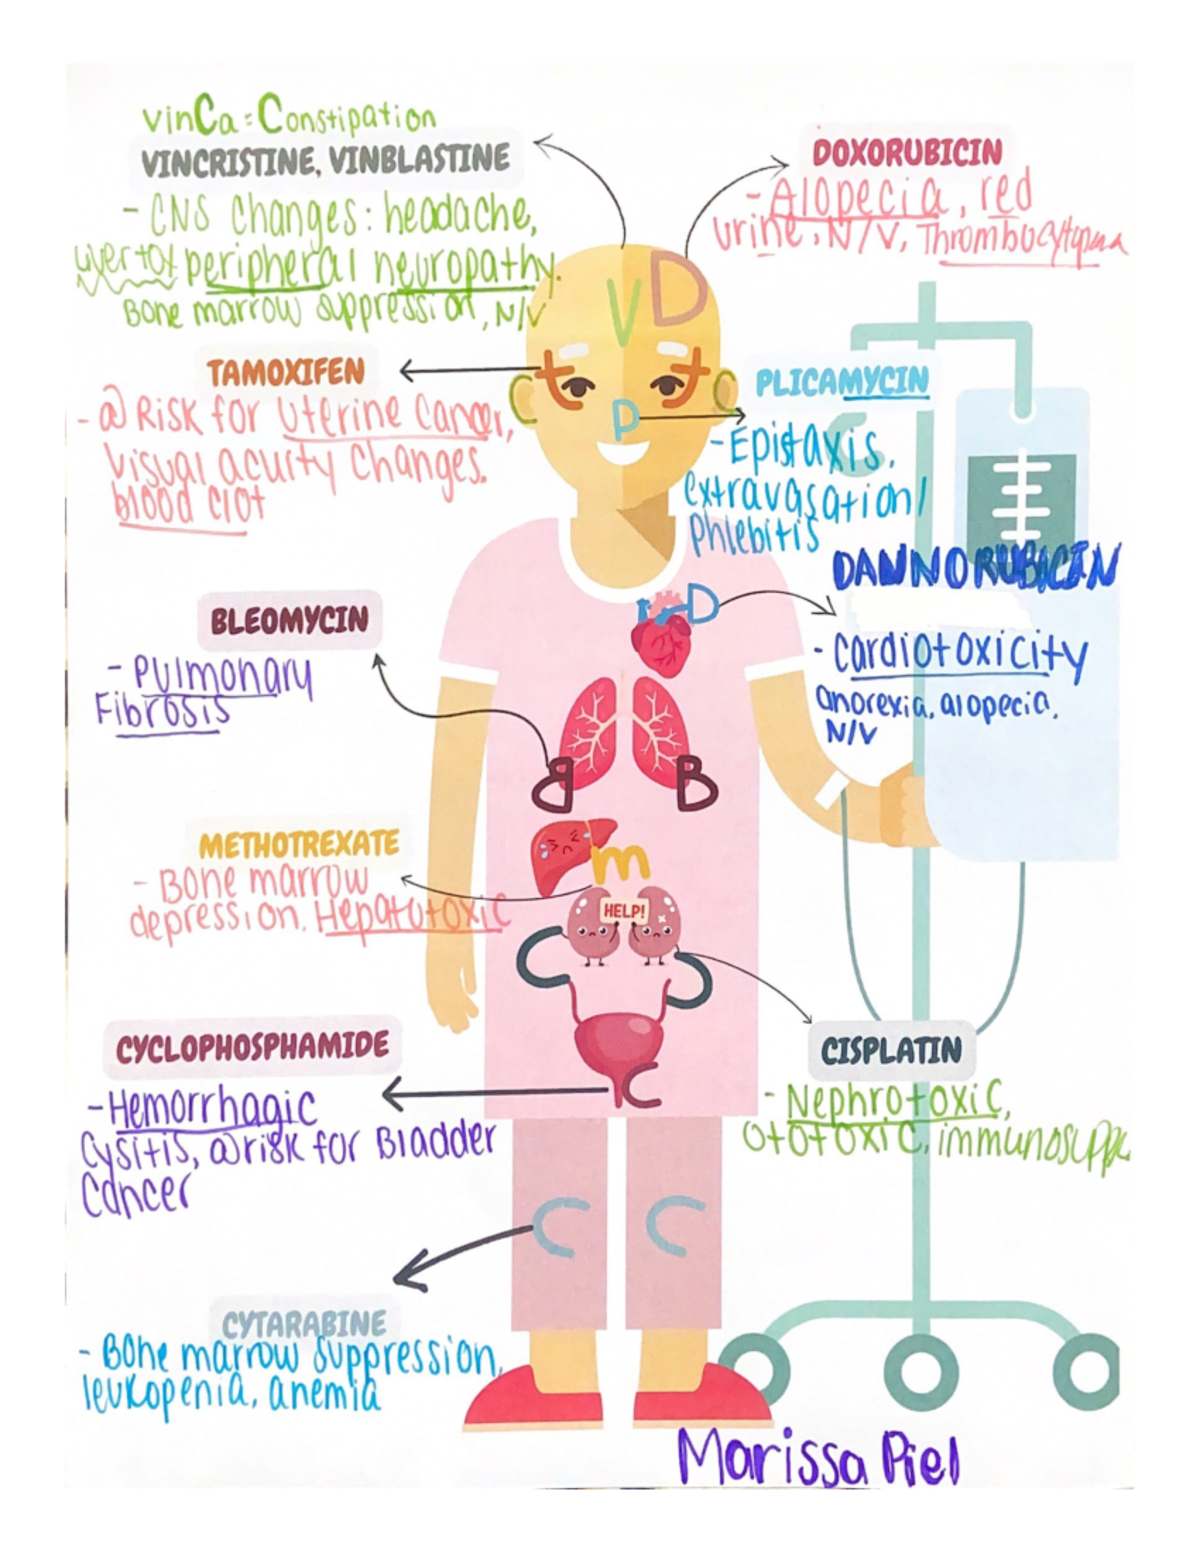 vinCa = Constipation
VINCRISTINE, VINBLASTINE
- CNS Changes: headache,
liver tox peripheral neuropathy.
Bone marrow suppression, N/V
DOXORUBICIN
- Alopecia, red
urine, N/V, Thrombocytopenia
V D
TAMOXIFEN
- @ Risk for Uterine Cancer,
Visual acuity Changes.
blood clot
C
C
P
PLICAMYCIN
- Epistaxis.
extravasation/
Phlebitis
DANNORUBICIN
D
- Cardiotoxicity
anorexia, alopecia,
N/V
BLEOMYCIN
- Pulmonary
Fibrosis
B B
METHOTREXATE
- Bone marrow
depression, Hepatotoxic
m
HELP!
C
CYCLOPHOSPHAMIDE
- Hemorrhagic
Cysitis, @risk for Bladder
Cancer
C
CISPLATIN
- Nephrotoxic,
Ototoxic, immunosuppr
C C
CYTARABINE
- Bone marrow suppression,
leukopenia, anemia
Marissa Piel